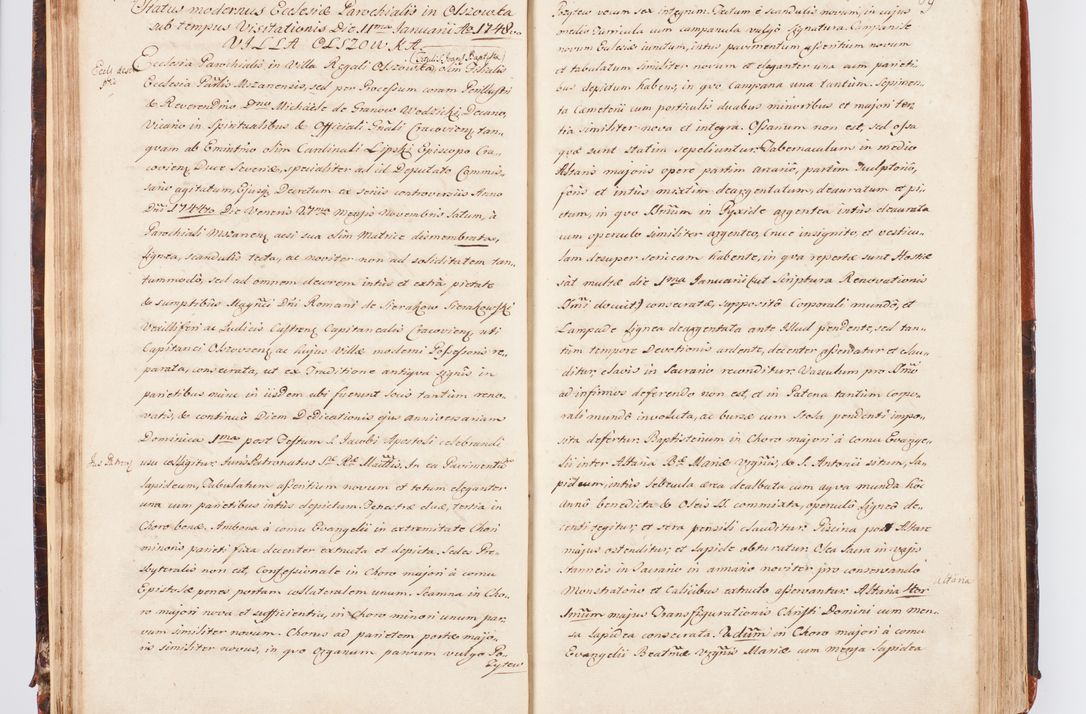 Status modernus Ecclesiæ Parochialis in Olszowka
sub tempus Visitationis Die 11ma Januarii Ao 1748
VILLA OLSZOWKA.
Tituli S. Joan̄. Baptistæ
Ecclesia Parochialis in Villa Regali Olszowka, olim Filialis
Ecclesiæ Pachlis Mzanensis, sed per Processum coram Perillustri
& Reverendmo Dno Michaele de Granow Wodzicki, Decano,
Vicario in Spiritualibus & Officiali Gn̄ali Cracovien̄, tan„
quam ab Emintmo olim Cardinali Lipski Episcopo Cra„
covien̄, Duce Severiæ, specialiter ad id Deputato Commis„
sario agitatum, Ejusq̄ Decretum ex seriis controversiis Anno
Dn̄i 1744to Die Veneris V.7ma Mensis Novembris latum, à
Parochiali Mszanen̄ aesi sua olim Matrice dismembrata,
lignea, scandulis tecta, ac noviter non ad soliditatem tan„
tummodo, sed ad omnem decorem intus et extra pietate
& sumptibus Magn̄ci Dn̄i Romani de Sierakow Sierakowski
Vexilliferi ac Iudicis Castren̄ Capitanealis Cracovien̄ uti
Capitanei Olszovien̄, ac hujus villæ moderni Possessoris re„
parata, consecrata, ut ex Traditione antiqva signis in
parietibus nunc in iisdem ubi fuerunt locis tantum reno„
vatis, & continuo Diem Dedicationis ejus anniversariam
Dominica 1ma post Festum S. Jacobi Apostoli celebrandi
usu colligitur. Juris Patronatus Sae Rae Mattis. In ea Pavimentū
lapideum, Tabulatum asseritium novum et totum eleganter
una cum parietibus intus depictum. Fenestræ duæ, tertia in
Choro benæ. Ambona à cornu Evangelii in extremitate Chori
minoris parieti fixa decenter extructa et depicta. Sedes Pre„
sbyteralis non est, Confessionale in Choro majori à cornu
Epistolæ penes portam collateralem unum. Scamna in Cho„
ro majori nova et sufficientia, in Choro minori unum par„
vum similiter novum. Chorus ad parietem portæ majo„
ris similiter novus, in qvo Organum parvum vulgo Po„
zytew
Eccle descri
ptio
Jus Patron̄
Pozytew verum sex integrum. Tectum è scandulis novum, in cujus
medio Turricula cum campanula vulgo Sygnatura. Campanile
novum Eclesiæ iunctum, intus pavimentum asseritium novum
et tabulatum similiter novum et eleganter una cum parieti
bus depictum habens, in qvo Campana una tantum. Sepimen„
ta Cæmeterii cum portulis duabus minoribus et majori ter„
tia similiter nova et integra. Ossarium non est, sed ossa
qvæ sunt statim sepeliuntur. Tabernaculum in medio
Altaris majoris opere partim arcario, partim Sculptorio,
foris et intus mixtim deargentatum, deauratum et pi„
ctum, in qvo Sm̄um in Pyxide argentea intus deaurata
cum operculo similiter argenteo, Cruce insignito, et vesticu„
lam desuper sericam habente, in qva repertæ sunt Hostiæ
sāt multæ die 1ma Januarii (ut Scriptura Renovationis
Sm̄i docuit) consecratæ, supposito Corporali mundo, et
Lampade lignea deargentata ante Illud pendente, sed tan„
tum tempore Devotionis ardente, decenter asservatur et clau„
ditur, clavis in Sacrario reconditur. Vasculum pro Sm̄o
ad infirmos deferendo non est, et in Patena tantum corpo„
rali munde involuta, ac bursæ cum Stola pendenti impo„
sita defertur. Baptisterium in Choro majori à cornu Evange„
lii inter Altaria Bæ Mariæ Vrgn̄is, & S. Antonii situm, la„
pideum, intus lebecula ærea dealbata cum aqva munda hōc
anno benedicta & Oleis SS. commixta, operculo ligneo de„
centi tegitur, et sera pensili clauditur. Piscina post Altare
majus ostenditur, et lapide obturatur. Olea Sacra in vasis
stanneis in Sacrario in armario noviter pro conservando
Monstratorio et Calicibus extructo asservantur. Altaria 4tor
Imum majus Transfigurationis Christi Domini cum men„
sa lapidea consecrata. 2dum in Choro majori à cornu
Evangelii Beatmæ Vrgn̄is Mariæ cum mensa lapidea
Altaria